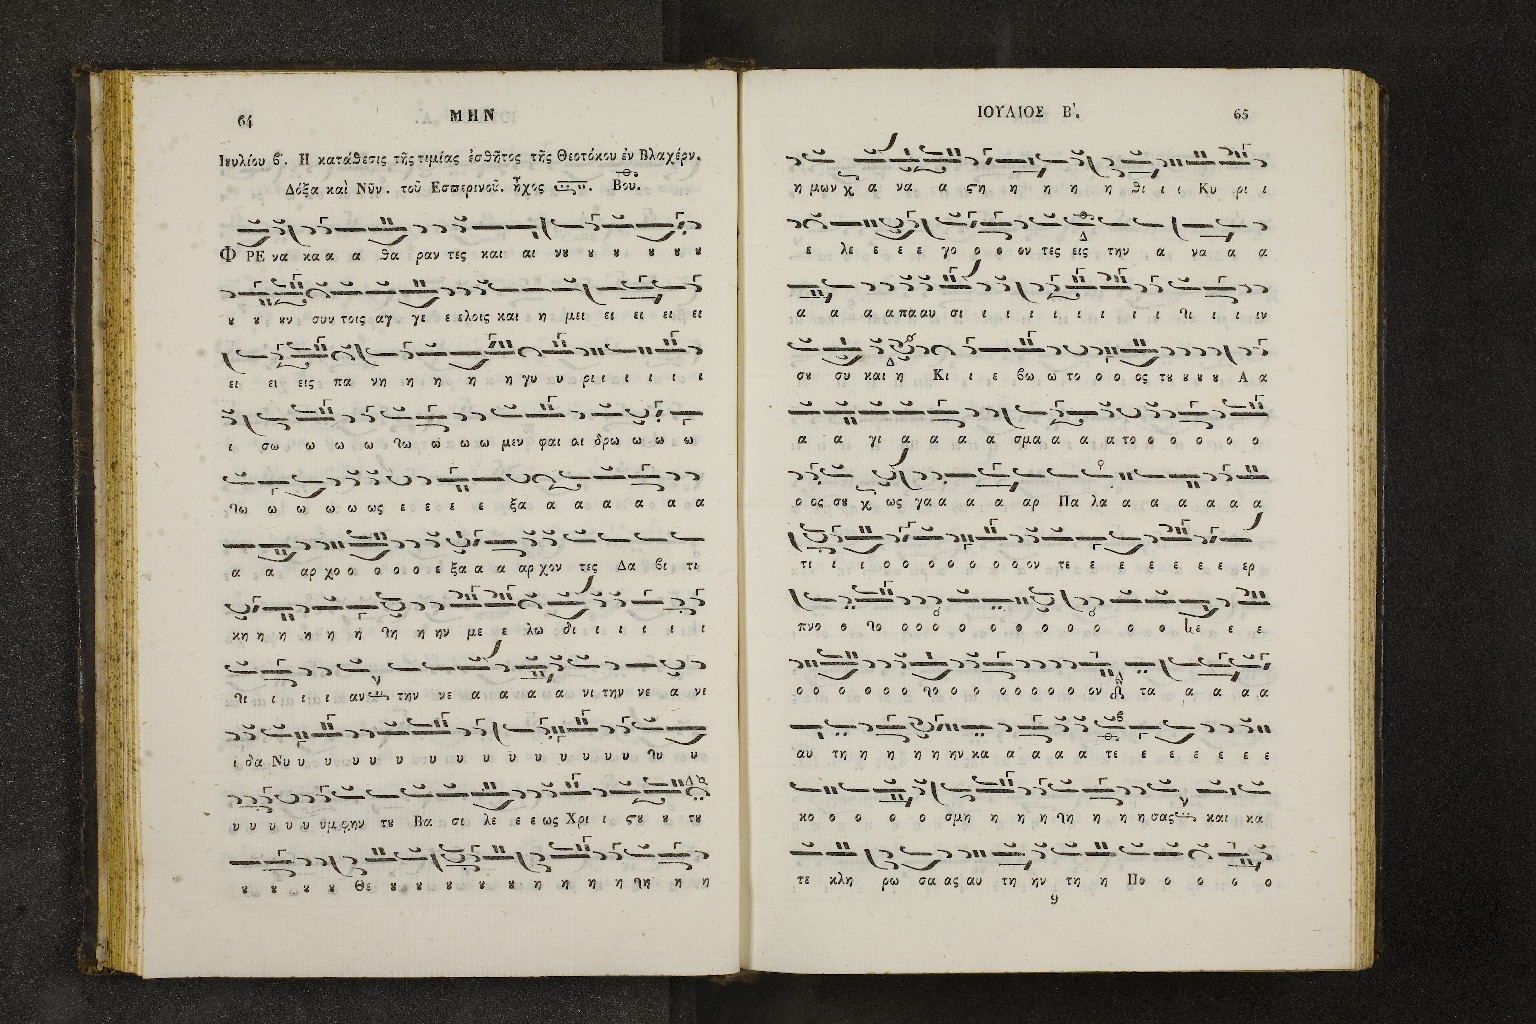 64 ΜΗΝ
Ιουλίου β΄. Η κατάθεσις τῆς τιμίας ἐσθῆτος τῆς Θεοτόκου ἐν Βλαχέρν.
Δόξα καὶ Νῦν. τοῦ Εσπερινοῦ. ἦχος Βου.
Φ ΡΕ να κα α α θα ραν τες και αι νȣ ȣ ȣ ȣ ȣ ȣ ȣ
ȣ ȣ ȣν συν τοις αγ γε ε ελοις και η μει ει ει ει ει
ει ει εις πα νη η η η η γυ υ ρι ι ι ι ι ι
ι σω ω ω ω λω ω ω ω μεν φαι αι δρω ω ω ω
λω ω ω ω ω ως ε ε ε ε ξα α α α α α α
α α αρ χο ο ο ο ο ε ξα α α αρ χον τες Δα βι τι
κη η η η η η λη η ην με ε λω δι ι ι ι ι ι
λι ι ι ι αν την νε α α α α νι την νε α νι
ι δα Νυ υ υ υ υ υ υ υ υ υ υ υ υ λυ υ
υ υ υ υ υ υμφην τȣ Βα σι λε ε ε ως Χρι ι ςȣ ȣ τȣ
ȣ ȣ ȣ ȣ Θε ȣ ȣ ȣ ȣ ȣ ȣ η η η η λη η η
ΙΟΥΛΙΟΣ Β΄. 65
η μων α να α ςη η η η η θι ι ι Κυ ρι ι
ε λε ε ε ε γο ο ο ον τες εις την α να α α
α α α α πα αυ σι ι ι ι ι ι ι ι λι ι ι ιν
σȣ συ και η Κι ι ε βω ω το ο ο ος τȣ ȣ ȣ ȣ Α α
α α γι α α α α σμα α α α το ο ο ο ο ο
ο ος σȣ ως γα α α α αρ Πα λα α α α α α α
τι ι ι ο ο ο ο ο ο ο ον τε ε ε ε ε ε ε ερ
πνο ο λο ο ο ο ο ο ο ο ο ο ο ο με ε ε
ο ο ο ο ο ο λο ο ο ο ο ο ο ο ο ον τα α α α α
αυ τη η η η η η ην κα α α α α τε ε ε ε ε ε ε
κο ο ο ο ο σμη η η η λη η η η σας και κα
τε κλη ρω σα ας αυ τη ην τη η Πο ο ο ο ο
9